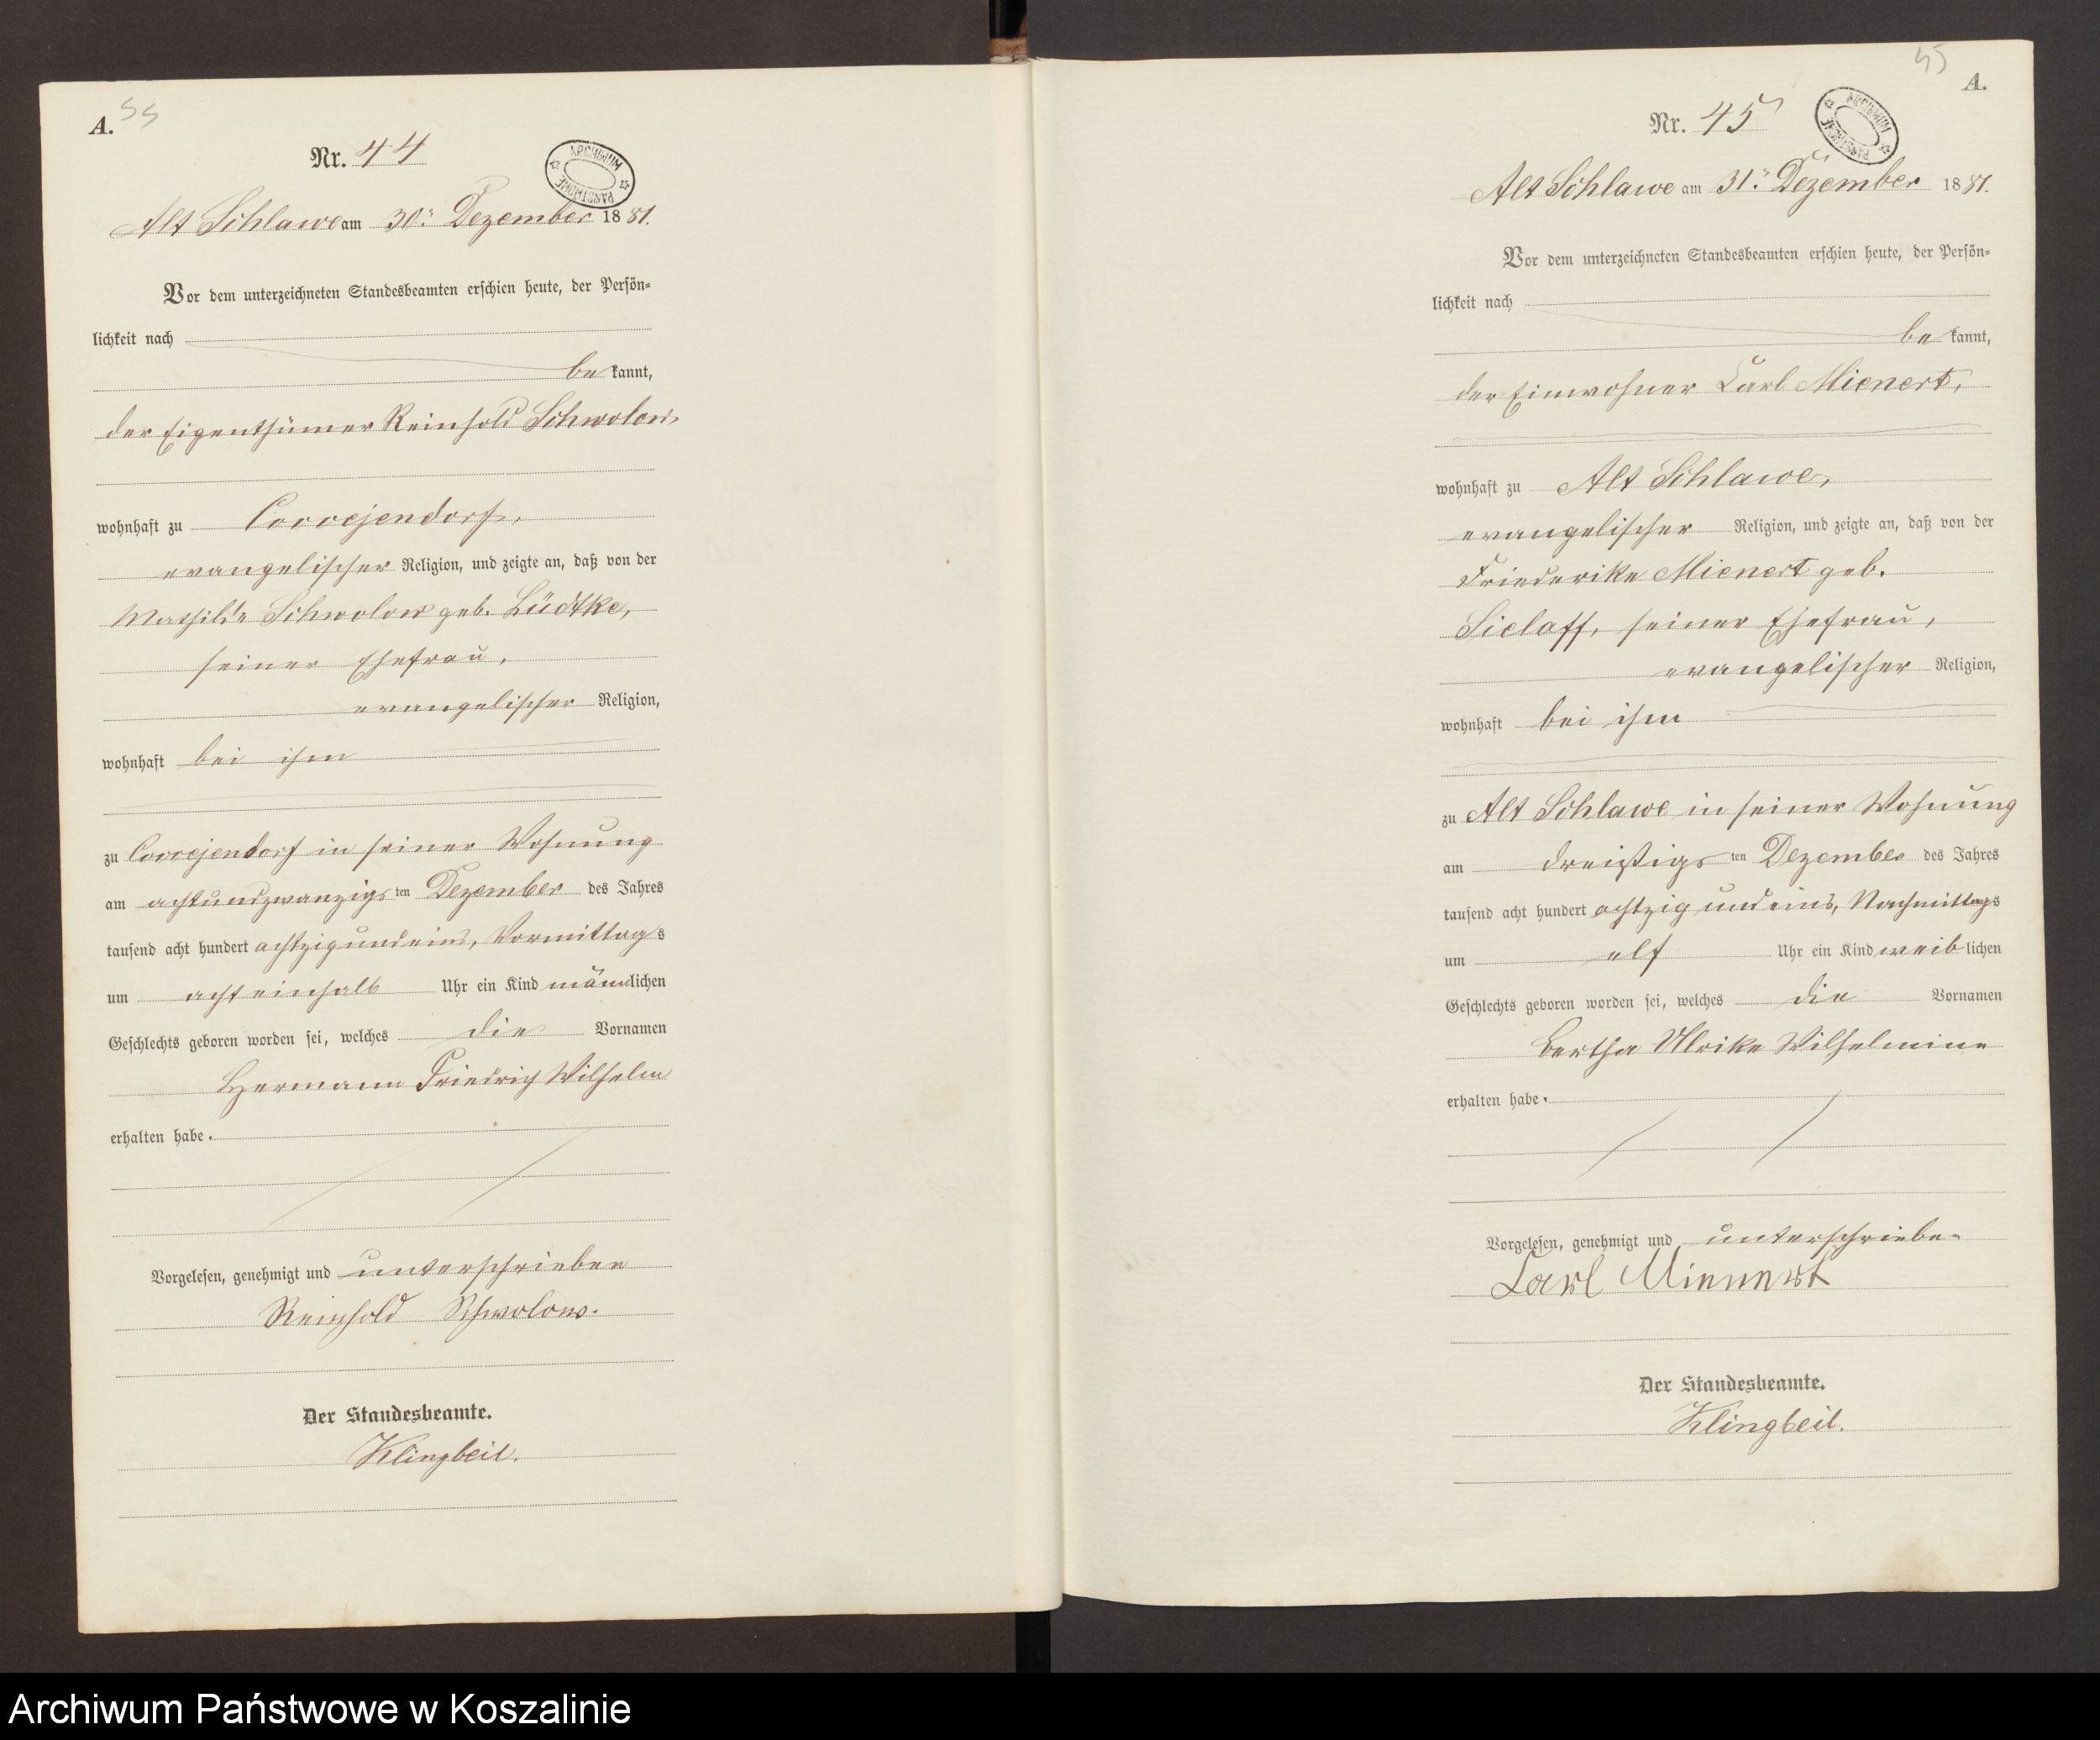 A. 44
Nr. 44
ARCHIWUM PAŃSTWOWE
Alt Schlawe am 30. Dezember 1881.
Vor dem unterzeichneten Standesbeamten erschien heute, der Persön-
lichkeit nach
bekannt,
der Eigenthümer Reinhold Schwolow,
wohnhaft zu Coccejendorf,
evangelischer Religion, und zeigte an, daß von der
Mathilde Schwolow geb. Lüdtke,
seiner Ehefrau,
evangelischer Religion,
wohnhaft bei ihm
zu Coccejendorf in seiner Wohnung
am achtundzwanzigsten Dezember des Jahres
tausend acht hundert achtzigundeins, Vormittags
um achteinhalb Uhr ein Kind männlichen
Geschlechts geboren worden sei, welches die Vornamen
Hermann Friedrich Wilhelm
erhalten habe.
Vorgelesen, genehmigt und unterschrieben
Reinhold Schwolow.
Der Standesbeamte.
Klingbeil.
45 A.
Nr. 45
ARCHIWUM PAŃSTWOWE
Alt Schlawe am 31. Dezember 1881.
Vor dem unterzeichneten Standesbeamten erschien heute, der Persön-
lichkeit nach
bekannt,
der Einwohner Carl Mienert,
wohnhaft zu Alt Schlawe,
evangelischer Religion, und zeigte an, daß von der
Friederike Mienert geb.
Sielaff, seiner Ehefrau,
evangelischer Religion,
wohnhaft bei ihm
zu Alt Schlawe in seiner Wohnung
am dreißigsten Dezember des Jahres
tausend acht hundert achtzig und eins, Nachmittags
um elf Uhr ein Kind weiblichen
Geschlechts geboren worden sei, welches die Vornamen
Bertha Ulrike Wilhelmine
erhalten habe.
Vorgelesen, genehmigt und unterschrieben
Carl Minnert
Der Standesbeamte.
Klingbeil.
Archiwum Państwowe w Koszalinie